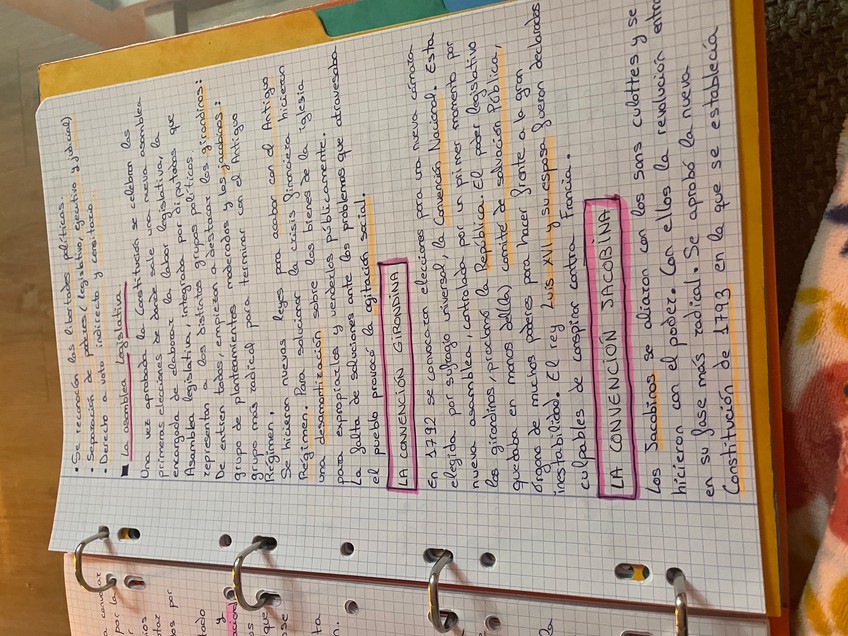 • Se reconocían las libertades políticas.
• Separación de poderes (legislativo, ejecutivo y judicial)
• Derecho a voto indirecto y censitario.
■ La asamblea legislativa
Una vez aprobada la Constitución se celebran las
primeras elecciones de donde sale una nueva asamblea
encargada de elaborar la labor legislativa, la
Asamblea legislativa, integrada por diputados que
representan a los distintos grupos políticos.
De entren todos, empiezan a destacar los girondinos:
grupo de planteamientos moderados y los jacobinos:
grupo más radical para terminar con el Antiguo
Régimen.
Se hicieron nuevas leyes para acabar con el Antiguo
Régimen. Para solucionar la crisis financiera hicieron
una desamortización sobre los bienes de la iglesia
para expropiarlos y venderlos públicamente.
La falta de soluciones ante los problemas que atravesaba
el pueblo provocó la agitación social.
LA CONVENCIÓN GIRONDINA
En 1792 se convocaron elecciones para una nueva cámara
elegida por sufragio universal, la Convención Nacional. Esta
nueva asamblea, controlada por un primer momento por
los girondinos, proclamó la República. El poder legislativo
quedaba en manos del(la) comité de salvación pública,
órgano de muchos poderes para hacer frente a la gran
inestabilidad. El rey Luis XVI y su esposa fueron declarados
culpables de conspirar contra Francia.
LA CONVENCIÓN JACOBINA
Los Jacobinos se aliaron con los sans culottes y se
hicieron con el poder. Con ellos la revolución entra
en su fase más radical. Se aprobó la nueva
Constitución de 1793 en la que se establecía
por la
por
y
que
la